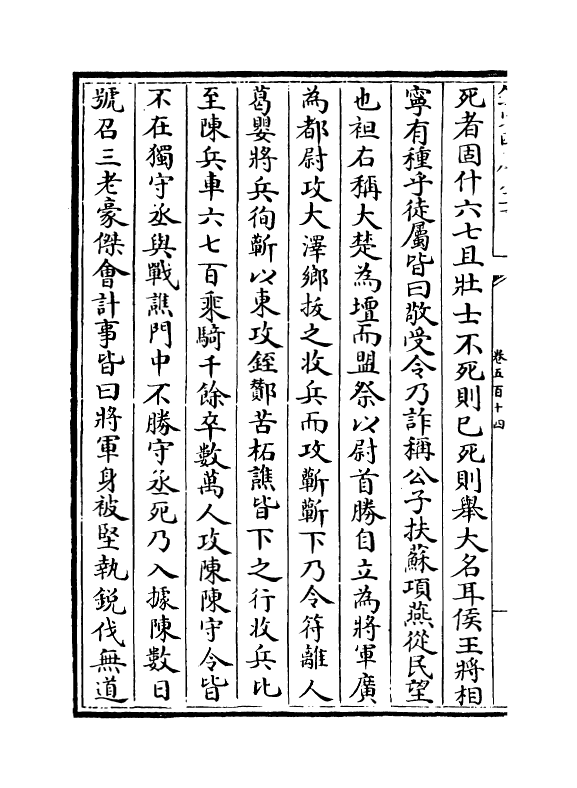 死者固什六七且壯士不死則已死則舉大名耳侯王將相
寧有種乎徒屬皆曰敬受令乃詐稱公子扶蘇項燕從民望
也袒右稱大楚為壇而盟祭以尉首勝自立為將軍廣
為都尉攻大澤鄉拔之收兵而攻蘄蘄下乃令符離人
葛嬰將兵徇蘄以東攻銍酇苦柘譙皆下之行收兵比
至陳兵車六七百乘騎千餘卒數萬人攻陳陳守令皆
不在獨守丞與戰譙門中不勝守丞死乃入據陳數日
號召三老豪傑會計事皆曰將軍身被堅執銳伐無道
卷五百十四